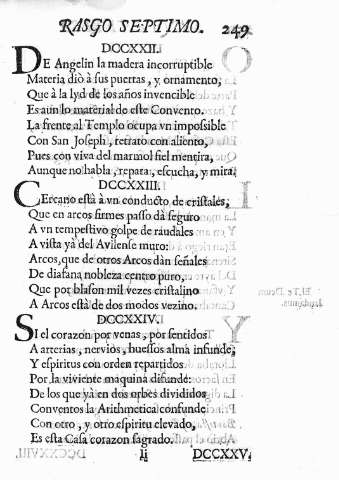 RASGO SEPTIMO. 249
DCCXXII.
DE Angelin la madera incorruptible
Materia diò à sus puertas, y ornamento,
Que à la lyd de los años invencible
Es aun lo material de este Convento.
La frente al Templo ocupa vn impossible
Con San Joseph, retrato con aliento,
Pues con viva del marmol fiel mentira,
Aunque no habla, repara, escucha, y mira.
DCCXXIII.
CErcano està à vn conducto de cristales,
Que en arcos firmes passo dà seguro
A vn tempestivo golpe de raudales
A vista yà del Avilense muro:
Arcos, que de otros Arcos dàn señales
De diafana nobleza centro puro,
Que por blason mil vezes cristalino
A Arcos està de dos modos vezino.
DCCXXIV.
SI el corazon por venas, por sentidos
A arterias, nervios, huessos alma infunde,
Y espiritus con orden repartidos
Por la viviente maquina difunde:
De los que yà en dos orbes divididos
Conventos la Arithmetica confunde,
Con otro, y otro espiritu elevado,
Es esta Casa corazon sagrado.
Ii DCCXXV.